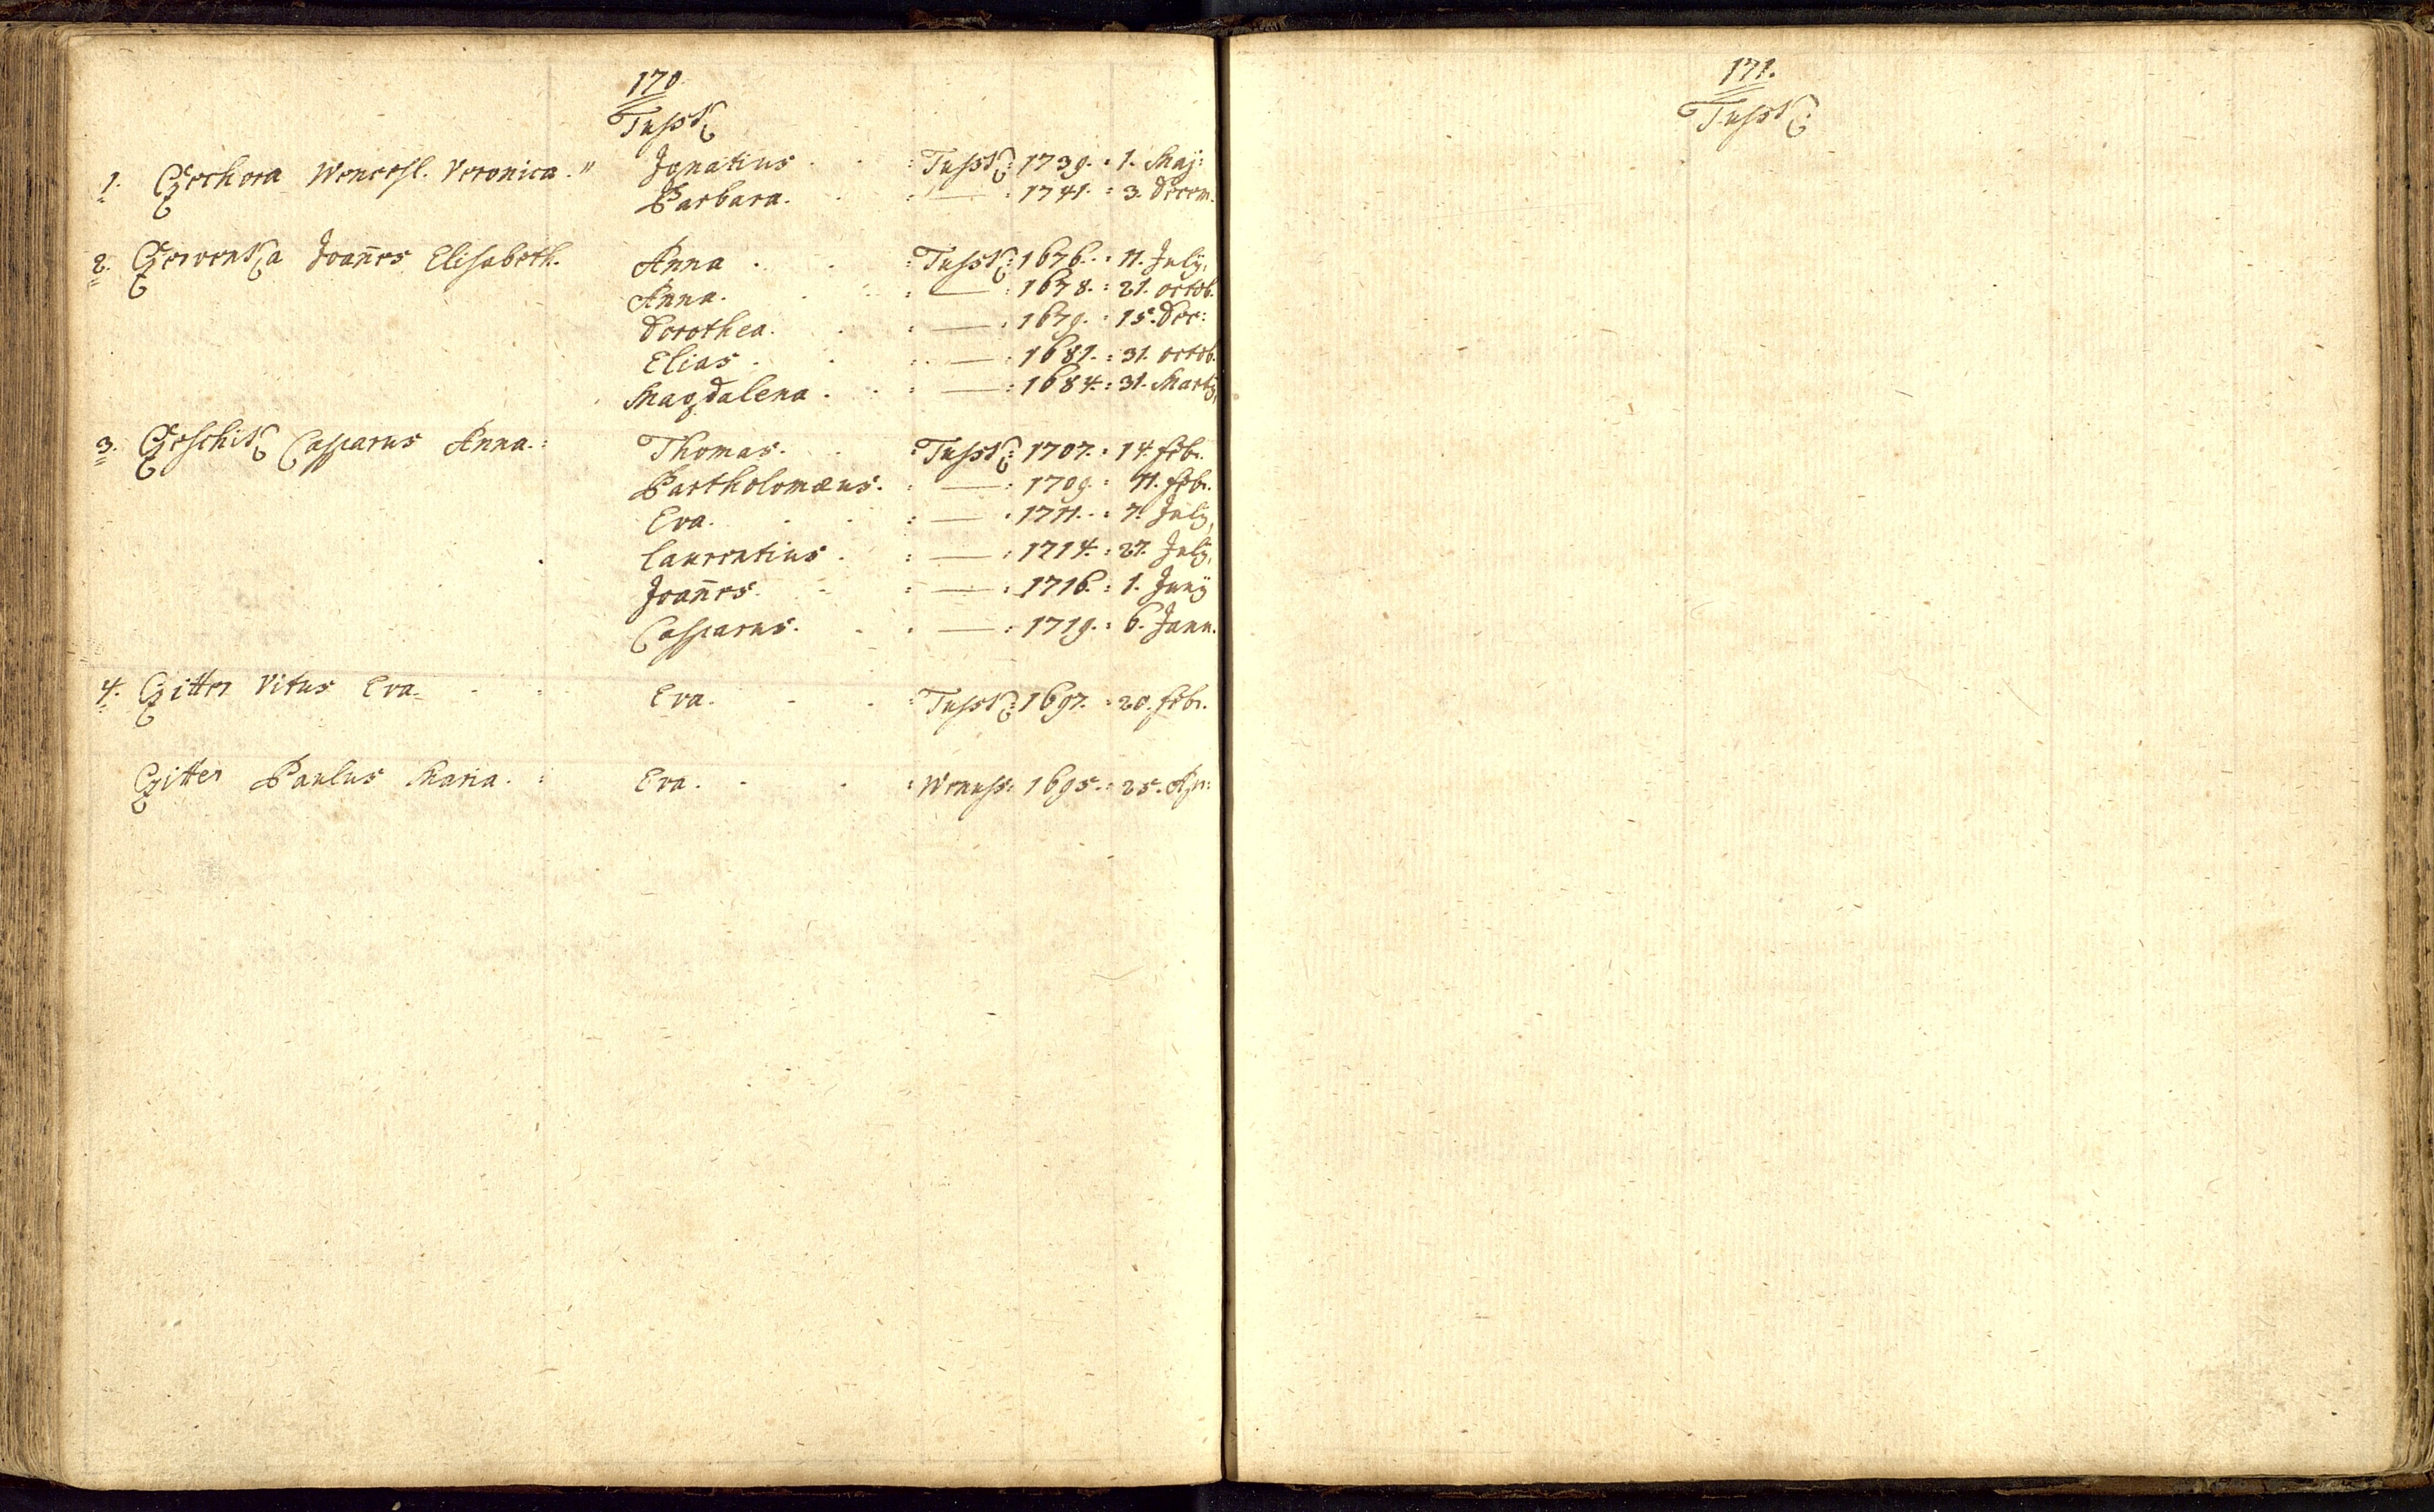 170
Tussk
1. Czechora Wencesl. Veronica. " Ignatius . . : Tussk: 1739. : 1. Maij:
Barbara. . : — : 1741. : 3. Decem.
2. Czerwenka Joan̄es Elisabeth. Anna . . : Tussk: 1676. : 11. Julij.
Anna. . : — : 1678. : 21. octob.
Dorothea. . : — : 1679. : 15. Dec:
Elias . . : — : 1681. : 31. octob.
Magdalena . . : — : 1684. : 31. Martij
3. Czeschik Casparus Anna. : Thomas. . : Tussk: 1707. : 14. febr.
Bartholomæus. : — : 1709. : 11. febr.
Eva. . . : — : 1711. : 7. Julij
Laurentius . : — : 1714. : 27. Julij
Joan̄es. . : — : 1716. : 1. Junij
Casparus. . : — : 1719. : 6. Janu.
4. Czitter Vitus Eva. . : Eva. . . : Tussk: 1697. : 20. febr.
Czitter Paulus Maria. : Eva. . . : 1695. : 25. Apr:
171.
Tussk: